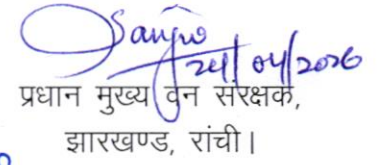 Sanjiv
24/04/2026
प्रधान मुख्य वन संरक्षक,
झारखण्ड, रांची।